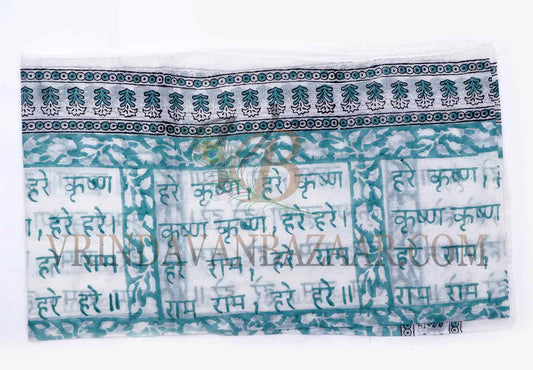 हरे कृष्ण हरे कृष्ण, हरे कृष्ण,
कृष्ण, हरे हरे। कृष्ण कृष्ण, हरे हरे। कृष्ण कृष्ण
VRINDAVANBAZAAR.COM
हरे राम हरे राम, हरे राम
हरे हरे॥ राम राम, हरे हरे॥ राम राम,